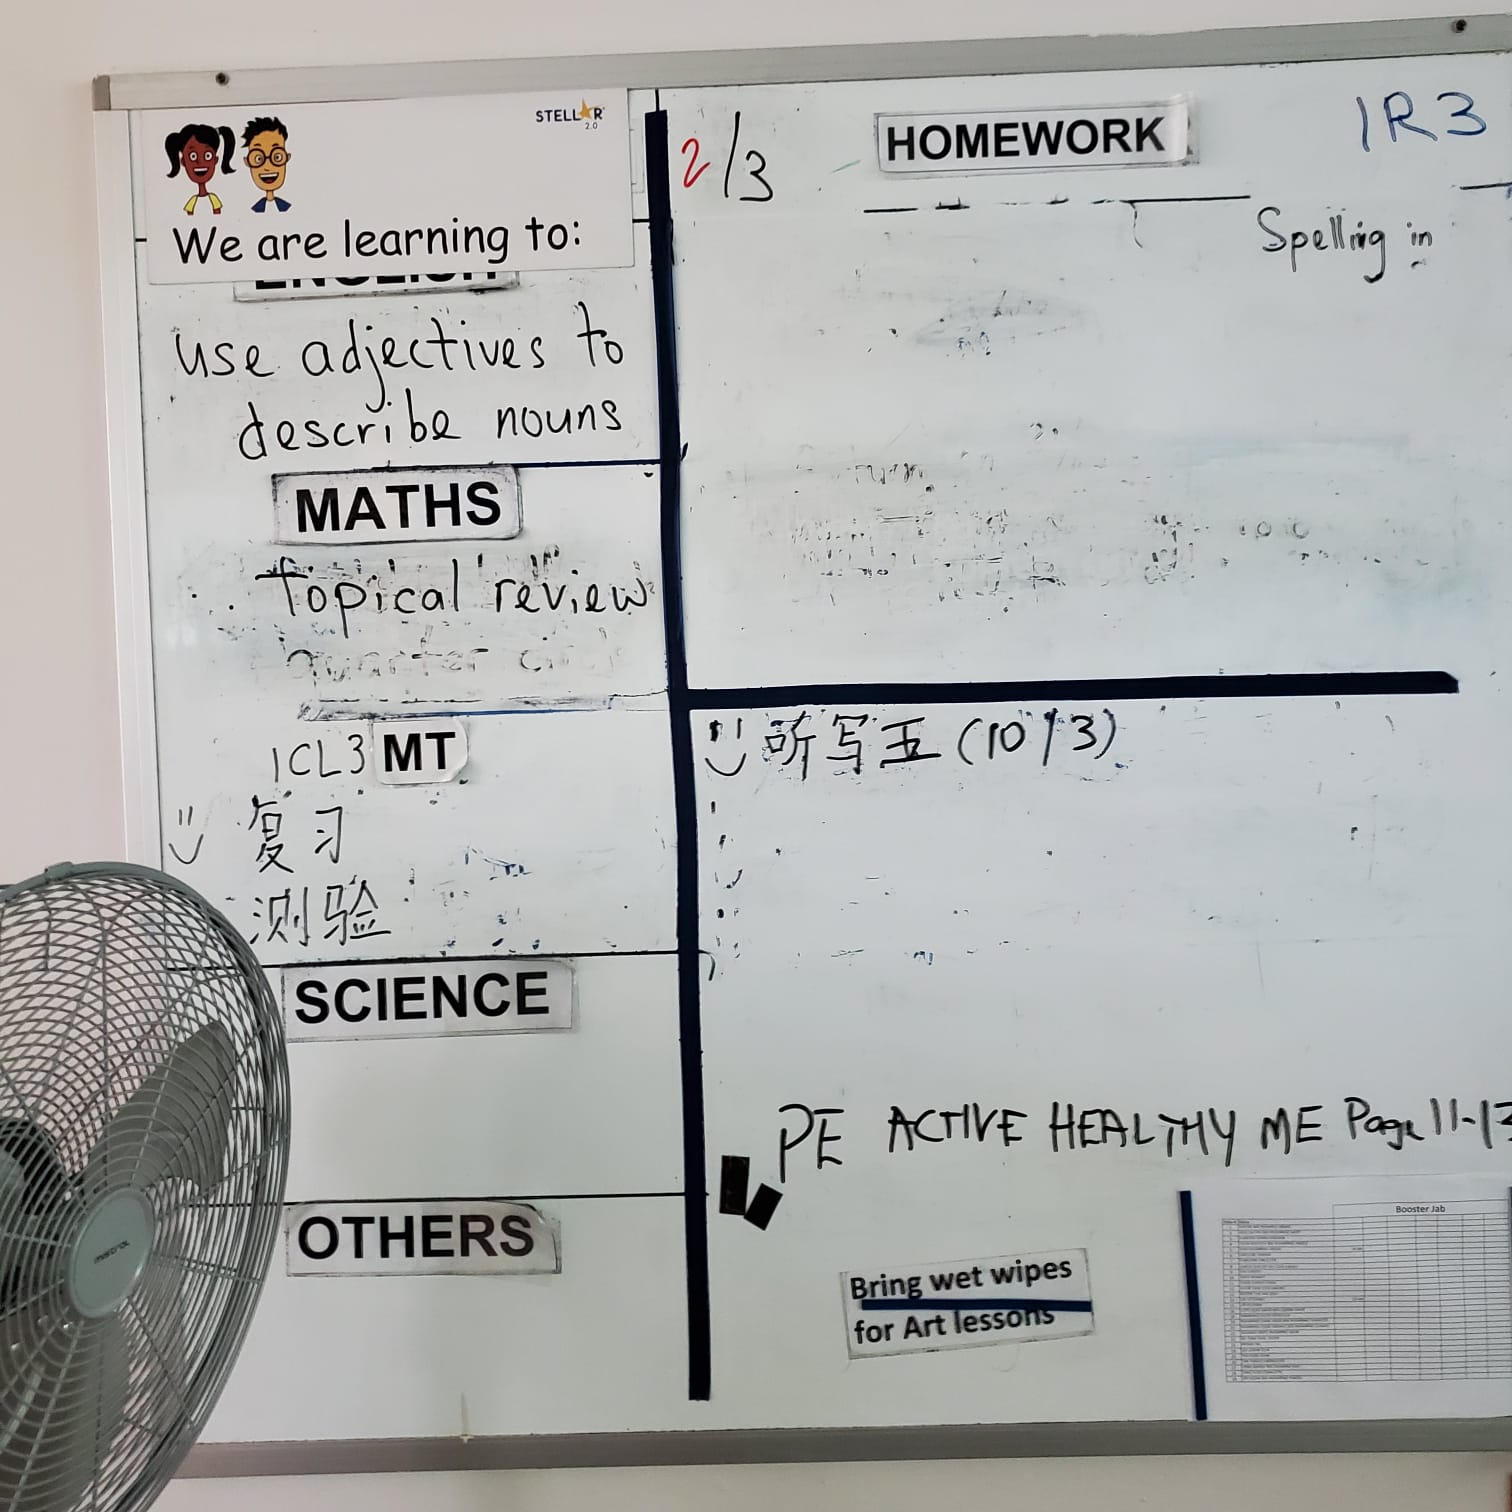 STELLAR
2.0
We are learning to:
ENGLISH
use adjectives to
describe nouns
MATHS
Topical review
quarter circle
1CL3 MT
复习
测验
SCIENCE
OTHERS
2/3
HOMEWORK
1R3
Spelling in
听写五 (10/3)
PE ACTIVE HEALTHY ME Page 11-12
Bring wet wipes
for Art lessons
Booster Jab
mistral